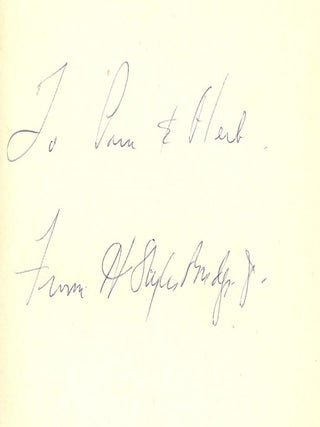 To Pam & Herb.
From H Styles Bridges Jr.